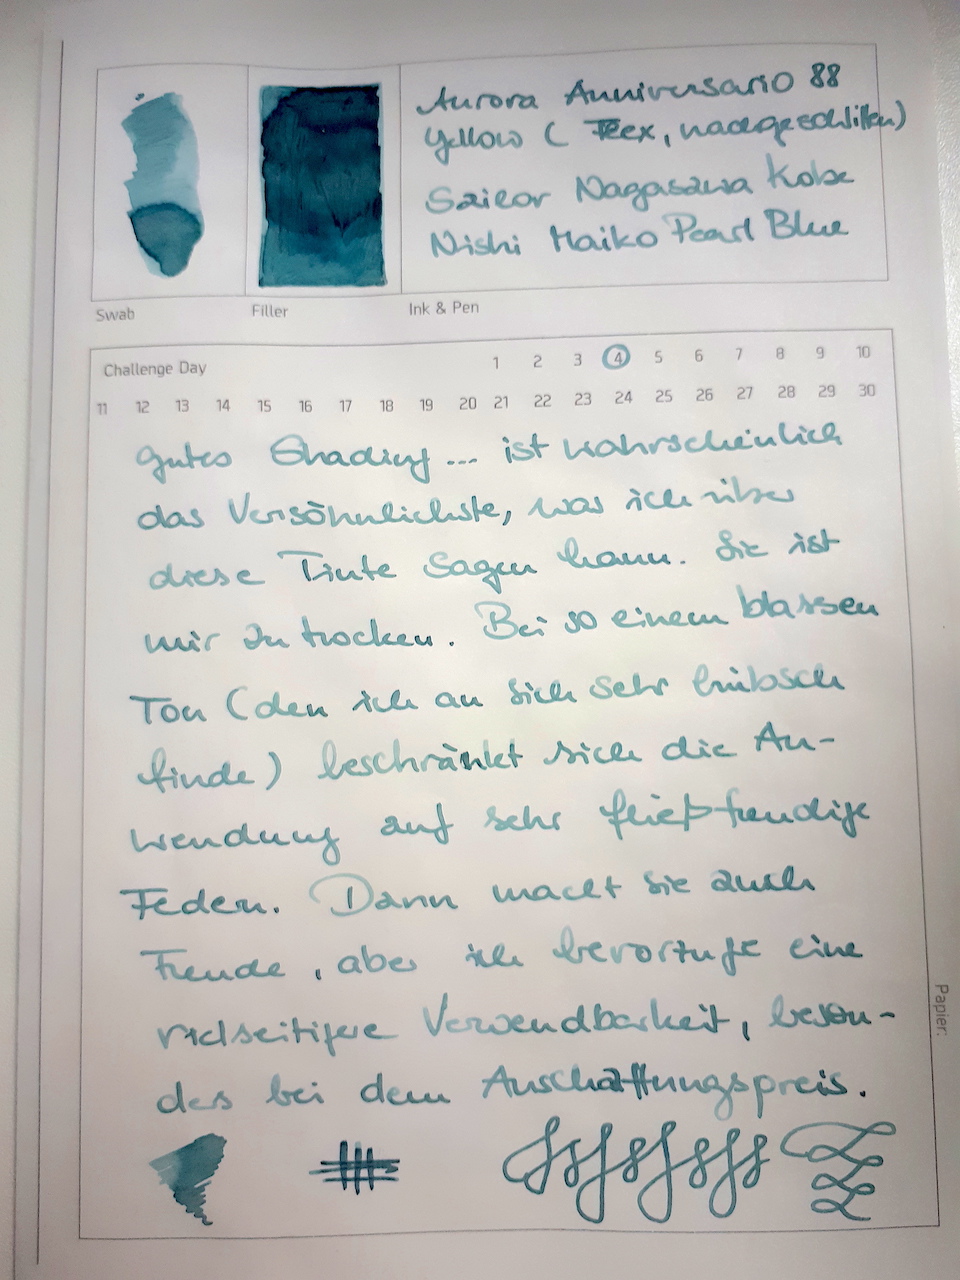 Aurora Anniversario 88
Yellow ( Flex, nachgeschliffen)
Sailor Nagasawa Kobe
Nishi Maiko Pearl Blue
Swab
Filler
Ink & Pen
Challenge Day
1 2 3 4 5 6 7 8 9 10
11 12 13 14 15 16 17 18 19 20 21 22 23 24 25 26 27 28 29 30
gutes Shading ... ist wahrscheinlich
das Versöhnlichste, was ich über
diese Tinte sagen kann. Sie ist
mir zu trocken. Bei so einem blassen
Ton (den ich an sich sehr hübsch
finde) beschränkt sich die An-
wendung auf sehr fließfreudige
Federn. Dann macht sie auch
Freude, aber ich bevorzuge eine
vielseitigere Verwendbarkeit, beson-
ders bei dem Anschaffungspreis.
Papier: